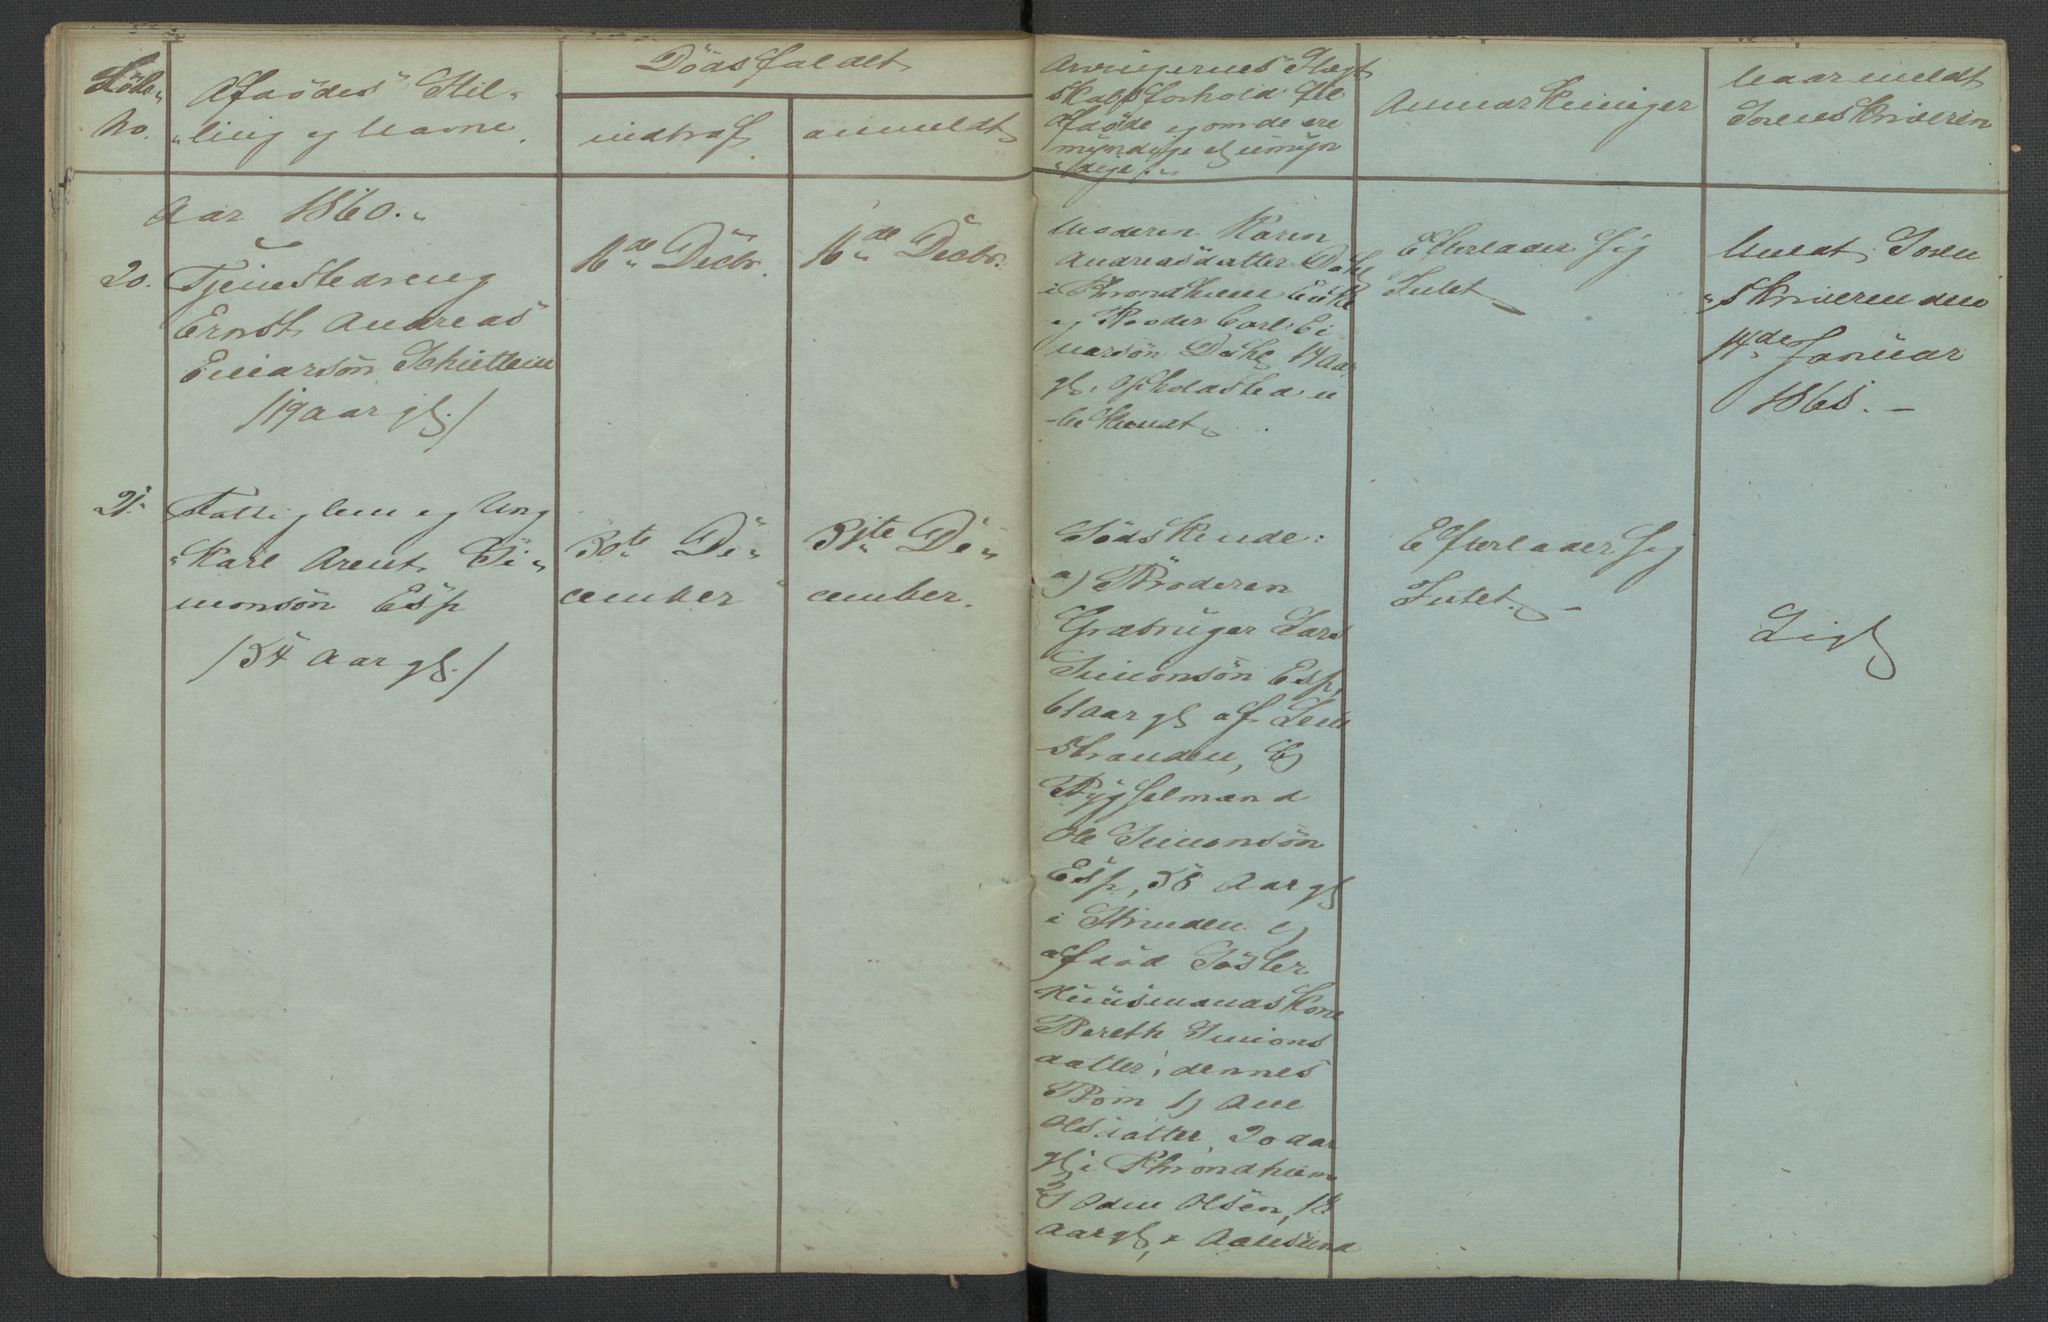 Løbe-
No.
Afdødes Stil-
-ling og Navne.
Dødsfaldet
indtraf
anmeldt
Arvingernes Slægt
skabsforhold til
Afdøde og om de ere
myndige el umyn
-dige.
Anmærkninger
Naar meldt
Sorenskriveren
Aar 1860.
20.
Tjenestedreng
Ernst Andreas
Einarsøn
/19 Aar gl./
16de Decbr.
16de Decbr.
Moderen Karen
Andreasdatter Dahl
i Throndhiem Enke
og Broder Carl Ei
narsøn Dahl, 14 Aar
gl, Opholdsted u
-bekiendt
Efterlader sig
Intet
Meldt Soren
-skriveren den
14de Januar
1861. -
21.
Fattiglem og Ung
-karl Arent Si-
monsøn Esp
/54 Aar gl./
30te De-
cember
31te De-
cember.
Sødskende:
a) Broderen
Grdbruger Lars
Simonsøn Esp,
61 Aar gl af Lein
stranden, b)
Bygselmand
Ole Simonsøn
Esp, 58 Aar gl
i Strinden c)
afdød Søster
Huusmandskone
Bereth Simons
datter, dennes
Børn 1) Ane
Olsdatter, 20 Aar
gl i Throndhiem
2) Oden Olsen, 18
Aar gl, i Aalesund
Efterlader sig
Intet. -
Ligl